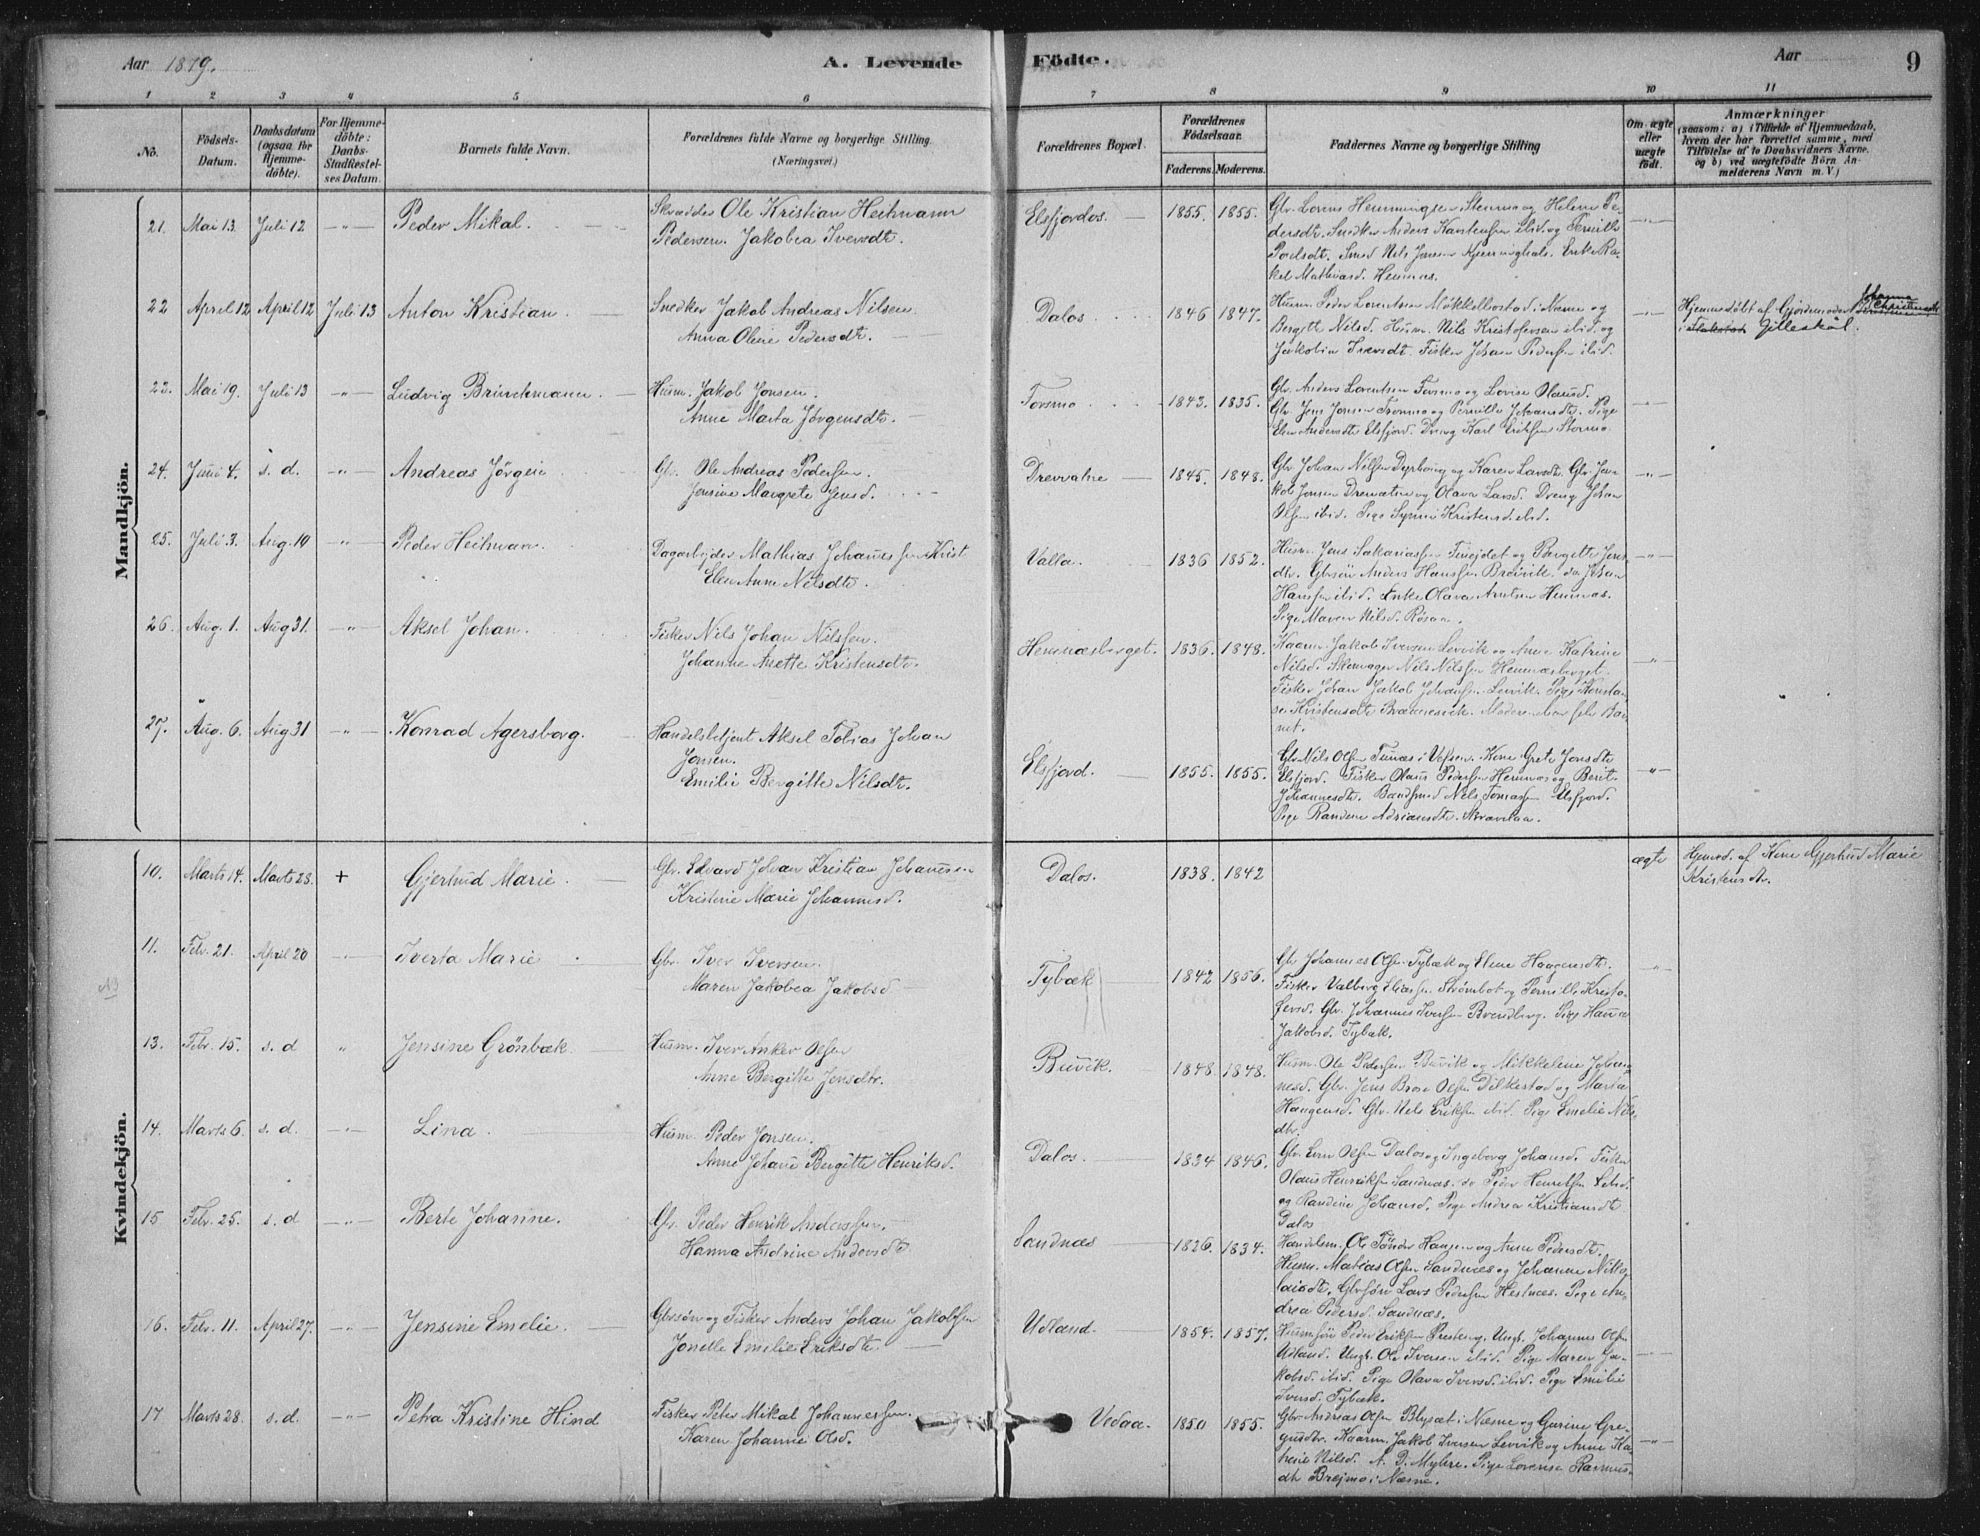 Aar 1879.
A. Levende Födte.
Aar
9
1 2 3 4 5 6 7 8 9 10 11
No.
Födsels-
Datum.
Daabsdatum
(ogsaa for
Hjemme-
döbte).
For Hjemme-
döbte:
Daabs-
Stadfestel-
ses Datum.
Barnets fulde Navn.
Forældrenes fulde Navne og borgerlige Stilling
(Næringsvei.)
Forældrenes Bopæl.
Forældrenes
Födselsaar.
Faderens. Moderens.
Faddernes Navne og borgerlige Stilling
Om ægte
eller
uægte
födt.
Anmærkninger
(saasom: a) i Tilfælde af Hjemmedaab,
hvem der har forrettet samme, med
Tilföielse af to Daabsvidners Navne,
og b) ved uægtefödte Börn An-
melderens Navn m. V.)
Mandkjön.
21. Mai 13. Juli 12 -"- Peder Mikal.
Skrædder Ole Kristian Heitmann
Pedersen. Jakobea Iversdt.
Elsfjordos. 1855. 1855.
Gbr. Lorens Hemmingsen Stenmo og Helene Pe-
dersdt. Snedker Anders Karstensen ibid. og Pernille
Poelsdt. Smed Nils Jansen
kel Mathiasd. Hemnes.
22 April 12 April 12 Juli 13 Anton Kristian
Snedker Jakob Andreas Nilsen.
Anna Oline Pedersdt.
Dalos 1846 1847.
Husm. Peder Lorentsen Mökkelbostad i Nesne og
Bergitte Nilsd. Husm. Nils Kristofersen ibid. og
Jakobia Iversdt. Fisker Johan Pedersen ibid.
-"-
Hjemmedöbt af Gjordemoder Johanna Christensdt.
i Gilleskål.
23. Mai 19. Juli 13 -"- Ludvig Brinchmann.
Husm. Jakob Jonsen.
Anne Marta Jörgensdt.
Forsmo 1843. 1835.
Gbr. Anders Lorentsen Forsmo og Lovise Olausd.
Gbr. Jens Jonsen Forsmo og Pernille Johansdt. Pige
Elen Andersdt. Elsfjord. Dreng Karl Eriksen Stormo.
-"-
24. Juni 4. s. d. -"- Andreas Jörgen
Gbr. Ole Andreas Pedersen.
Jensine Margrete Jensd.
Drevvatne 1845. 1848.
Gbr. Johan Nilsen Dyrhoug og Karen Larsdt. Gbr. Ja-
kob Jonsen Drevatne og Olava Larsd. Dreng Johan
Olsen ibid. Pige Synne Kristensd. ibid.
-"-
25. Juli 3. Aug. 10 -"- Peder Heitman.
Dagarbejder Mathias Johannessen
Elen Anna Nilsdt.
Valla 1836 1852.
Husm. Jens Sakariassen Finejdet og Bergitte Jens-
dt. Gbrsön Anders Hanssen Breivik. do Johan
Hanssen ibid. Enke Olava Arntsen Hemnes.
Pige Maren Nilsd. Rösaa.
-"-
26. Aug. 1. Aug 31. -"- Aksel Johan.
Fisker Nils Johan Nilssen.
Johanne Anette Kristensdt.
Hemnæsberget. 1836. 1848.
Kaarm. Jakob Iversen Levvik og Anne Katrine
Nilsd. Skomager Nils Nilssen Hemnæsberget.
Fisker Johan Jakob Johansen Levik. Pige Konstan-
se Kristensdt. Moderen bar selv Bar-
net.
-"-
27. Aug. 6. Aug 31 -"- Konrad Agersborg.
Handelsbetjent Aksel Tobias Johan
Jonsen.
Emilie Bergitte Nilsdt.
Elsfjord. 1855. 1855.
Gbr. Nils Olsen Funæs i Vefsen. Kone Grete Jonsdt.
Elsfjord. Fisker Olaus Pedersen Hemnæs og Berit
Johannesdt. Baadsmd Nils Tomassen Elsfjord.
Pige Randine Adriansdt.
-"-
Kvindekjön.
10. Marts 14. Marts 23. + Gjertrud Marie.
Gbr. Edvard Johan Kristian Johanssen
Kristine Marie Johannesd.
Dalos. 1838. 1842
ægte
Hjemd. af Kone Gjertrud Marie
Kristensdtr.
11. Febr. 21. April 20 -"- Iverta Marie
Gbr. Iver Iversen.
Maren Jakobea Jakobsd
Tybæk 1842 1856.
Gbr. Johannes Olsen Tybæk og Eline Haagensdt.
Fisker Valberg Eliassen Strömbot og Pernille Kristo-
fersd. Gbr. Johannes Iversen Brendberg. Pige Hanna
Jakobsd. Tybæk.
-"-
13. Febr. 15. s. d " Jensine Grönbæk
Husm. Iver Anker Olsen
Anne Bergitte Jensdtr.
Buvik. 1848. 1848.
Husm. Ole Pedersen Buvik og Mikkeline Johan-
nesd. Gbr. Jens Brose Olsen Dilkestad og Maria
Haagensd. Gbr. Nils Eriksen ibid. Pige Emelie Nils-
dtr.
14. Marts 6. s. d. -"- Lina.
Husm. Peder Jonsen.
Anne Johanne Bergitte Henriksd.
Dalos. 1834 1846.
Gbr. Even Olsen Dalos og Ingeborg Johansd. Fisker
Olaus Henriksen Sandnæs. do Peder Henriksen
og Randine Johansd. Pige Andrea Kristiansdt
Dalos
15 Febr. 25. s. d -"- Berte Johanne.
Gbr. Peder Henrik Anderssen.
Hanna Andrine Andersdt
Sandnæs 1826. 1834.
Handelsm. Ole Tönder Hagen og Anne Pedersdt.
Husm. Matias Olsen Sandnæs og Johanne Niko-
laisdt. Gbrsön Lars Pedersen Hestnæs. Pige An-
drea Pedersd. Sandnæs.
16. Febr. 11. April 27. -"- Jensine Emelie.
Gbrsön og Fisker Anders Johan Jakobsen
Jonette Emilie Eriksdt.
Utland. 1854. 1857.
Husmsön Peder Eriksen Presteng. Ungk. Johannes Olsen
Utland. Ungk. Ole Iversen ibid. Pige Maren Ja-
kobsd. ibid. Pige Olava Iversd. ibid. Pige Emilie
Iversd. Tybæk.
-"-
17 Marts 28. s. d. -"- Petra Kristine Hind
Fisker Peter Mikal Johannessen.
Karen Johanne Olsd.
Vedaa. 1850 1855.
Gbr. Andreas Olsen Blysæt i Næsne og Gurine Gre-
gusdtr. Kaarm. Jakob Iversen Levvik og Anne Ka-
trine Nilsd. A. D. Myhre. Pige Lovense Rasmus-
dtr Brejmo i Næsne.
-"-